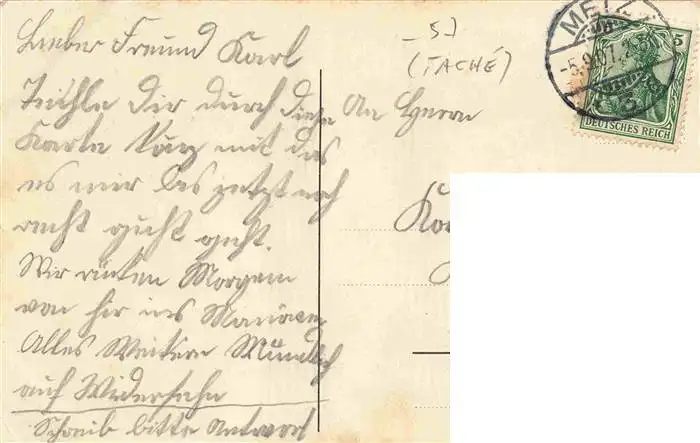 Lieber Freund Karl
Teihle Dir durch diese
Karte kurz mit das
es mir bis jetzt noch
recht guht geht.
Wir rücken Morgen
von hir ins Manöver
Alles Weitere Mündlich
auf Widersehn
Schreib bitte Antwort
-5J
(TACHÉ)
An Herrn
ME
-5.9.07.
5
DEUTSCHES REICH